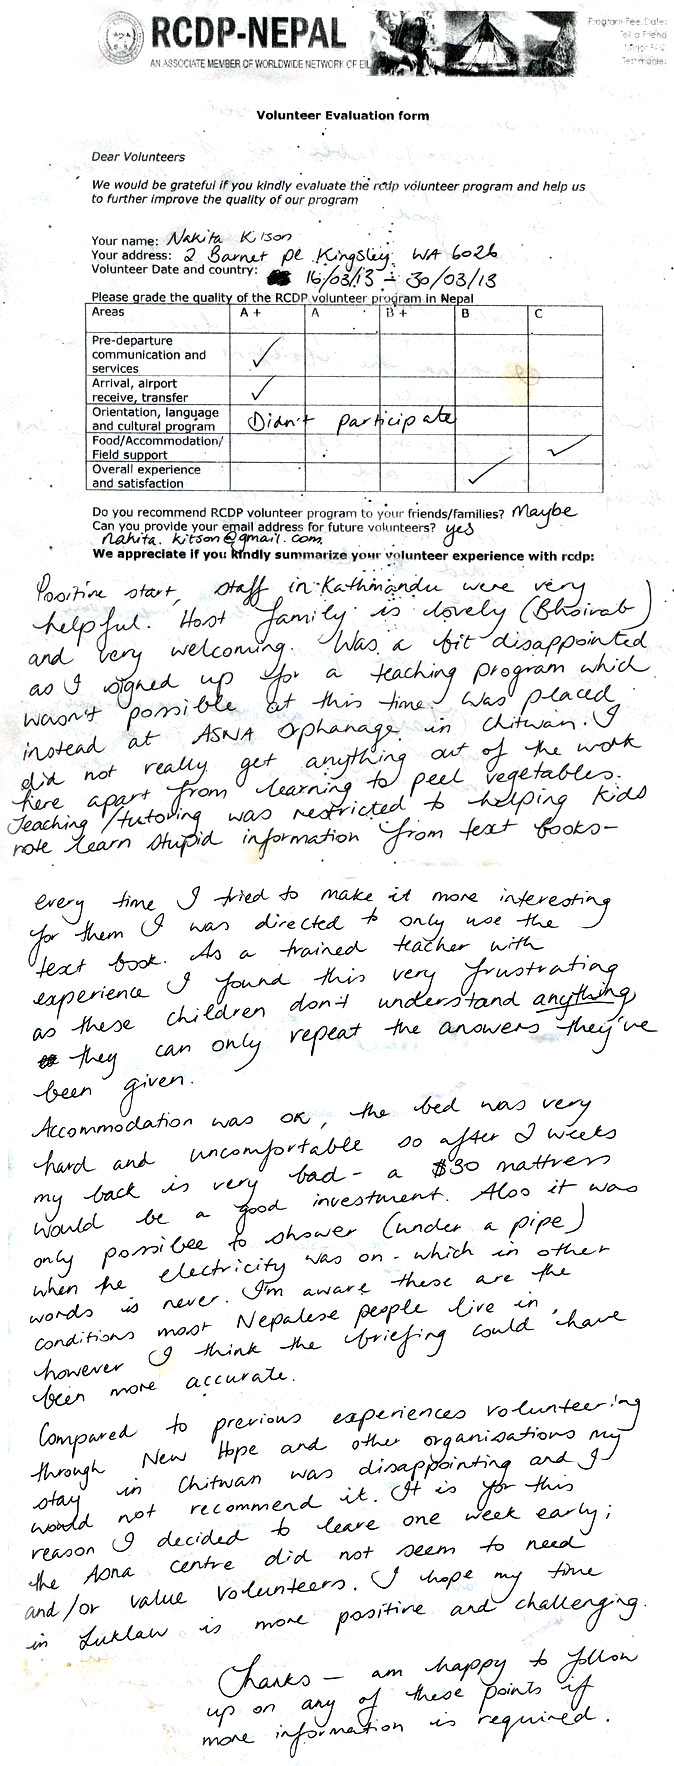 RCDP-NEPAL
AN ASSOCIATE MEMBER OF WORLDWIDE NETWORK OF EIL
Program Fee, Dates
Tell a Friend
Major FAQ
Testimonies
Volunteer Evaluation form
Dear Volunteers
We would be grateful if you kindly evaluate the rcdp volunteer program and help us
to further improve the quality of our program
Your name: Nakita Kitson
Your address: 2 Barnet pl Kingsley WA 6026
Volunteer Date and country: 16/03/13 - 30/03/13
Please grade the quality of the RCDP volunteer program in Nepal
Areas A + A B + B C
Pre-departure
communication and
services ✓
Arrival, airport
receive, transfer ✓
Orientation, language
and cultural program Didn't participate
Food/Accommodation/
Field support ✓
Overall experience
and satisfaction ✓
Do you recommend RCDP volunteer program to your friends/families? Maybe
Can you provide your email address for future volunteers? yes
nakita.kitson@gmail.com
We appreciate if you kindly summarize your volunteer experience with rcdp:
Positive start, staff in Kathmandu were very
helpful. Host family is lovely (Bhoirab)
and very welcoming. Was a bit disappointed
as I signed up for a teaching program which
wasn't possible at this time. Was placed
instead at ASNA Orphanage in Chitwan. I
did not really get anything out of the work
here apart from learning to peel vegetables.
Teaching/tutoring was restricted to helping kids
rote learn stupid information from text books-
every time I tried to make it more interesting
for them I was directed to only use the
text book. As a trained teacher with
experience I found this very frustrating
as these children don't understand anything,
they can only repeat the answers they've
been given.
Accommodation was ok, the bed was very
hard and uncomfortable so after 2 weeks
my back is very bad - a $30 mattress
would be a good investment. Also it was
only possible to shower (under a pipe)
when the electricity was on - which in other
words is never. I'm aware these are the
conditions most Nepalese people live in,
however I think the briefing could have
been more accurate.
Compared to previous experiences volunteering
through New Hope and other organisations my
stay in Chitwan was disappointing and I
would not recommend it. It is for this
reason I decided to leave one week early;
the Asna centre did not seem to need
and/or value volunteers. I hope my time
in Luklaw is more positive and challenging.
Thanks - am happy to follow
up on any of these points if
more information is required.